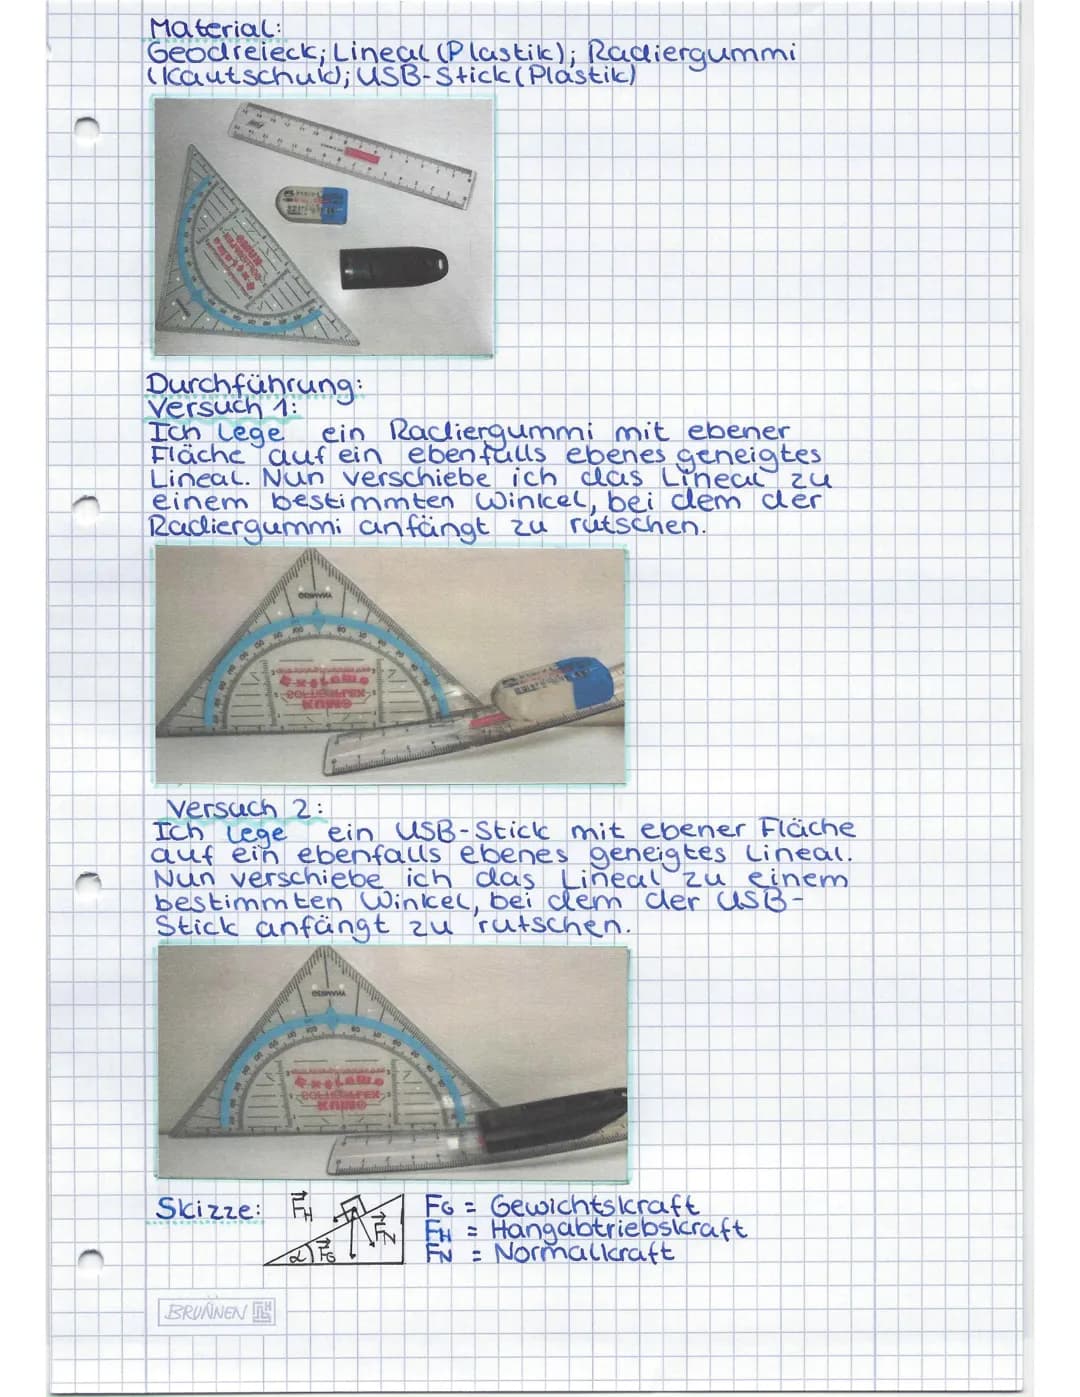 Material:
Geodreieck; Lineal (Plastik); Radiergummi
(Kautschuk); USB-Stick (Plastik)
Durchführung:
Versuch 1:
Ich lege ein Radiergummi mit ebener
Fläche auf ein ebenfalls ebenes geneigtes
Lineal. Nun verschiebe ich das Lineal zu
einem bestimmten Winkel, bei dem der
Radiergummi anfängt zu rutschen.
Versuch 2:
Ich lege ein USB-Stick mit ebener Fläche
auf ein ebenfalls ebenes geneigtes Lineal.
Nun verschiebe ich das Lineal zu einem
bestimmten Winkel, bei dem der USB-
Stick anfängt zu rutschen.
Skizze: FH FN α FG
FG = Gewichtskraft
FH = Hangabtriebskraft
FN = Normalkraft
BRUNNEN